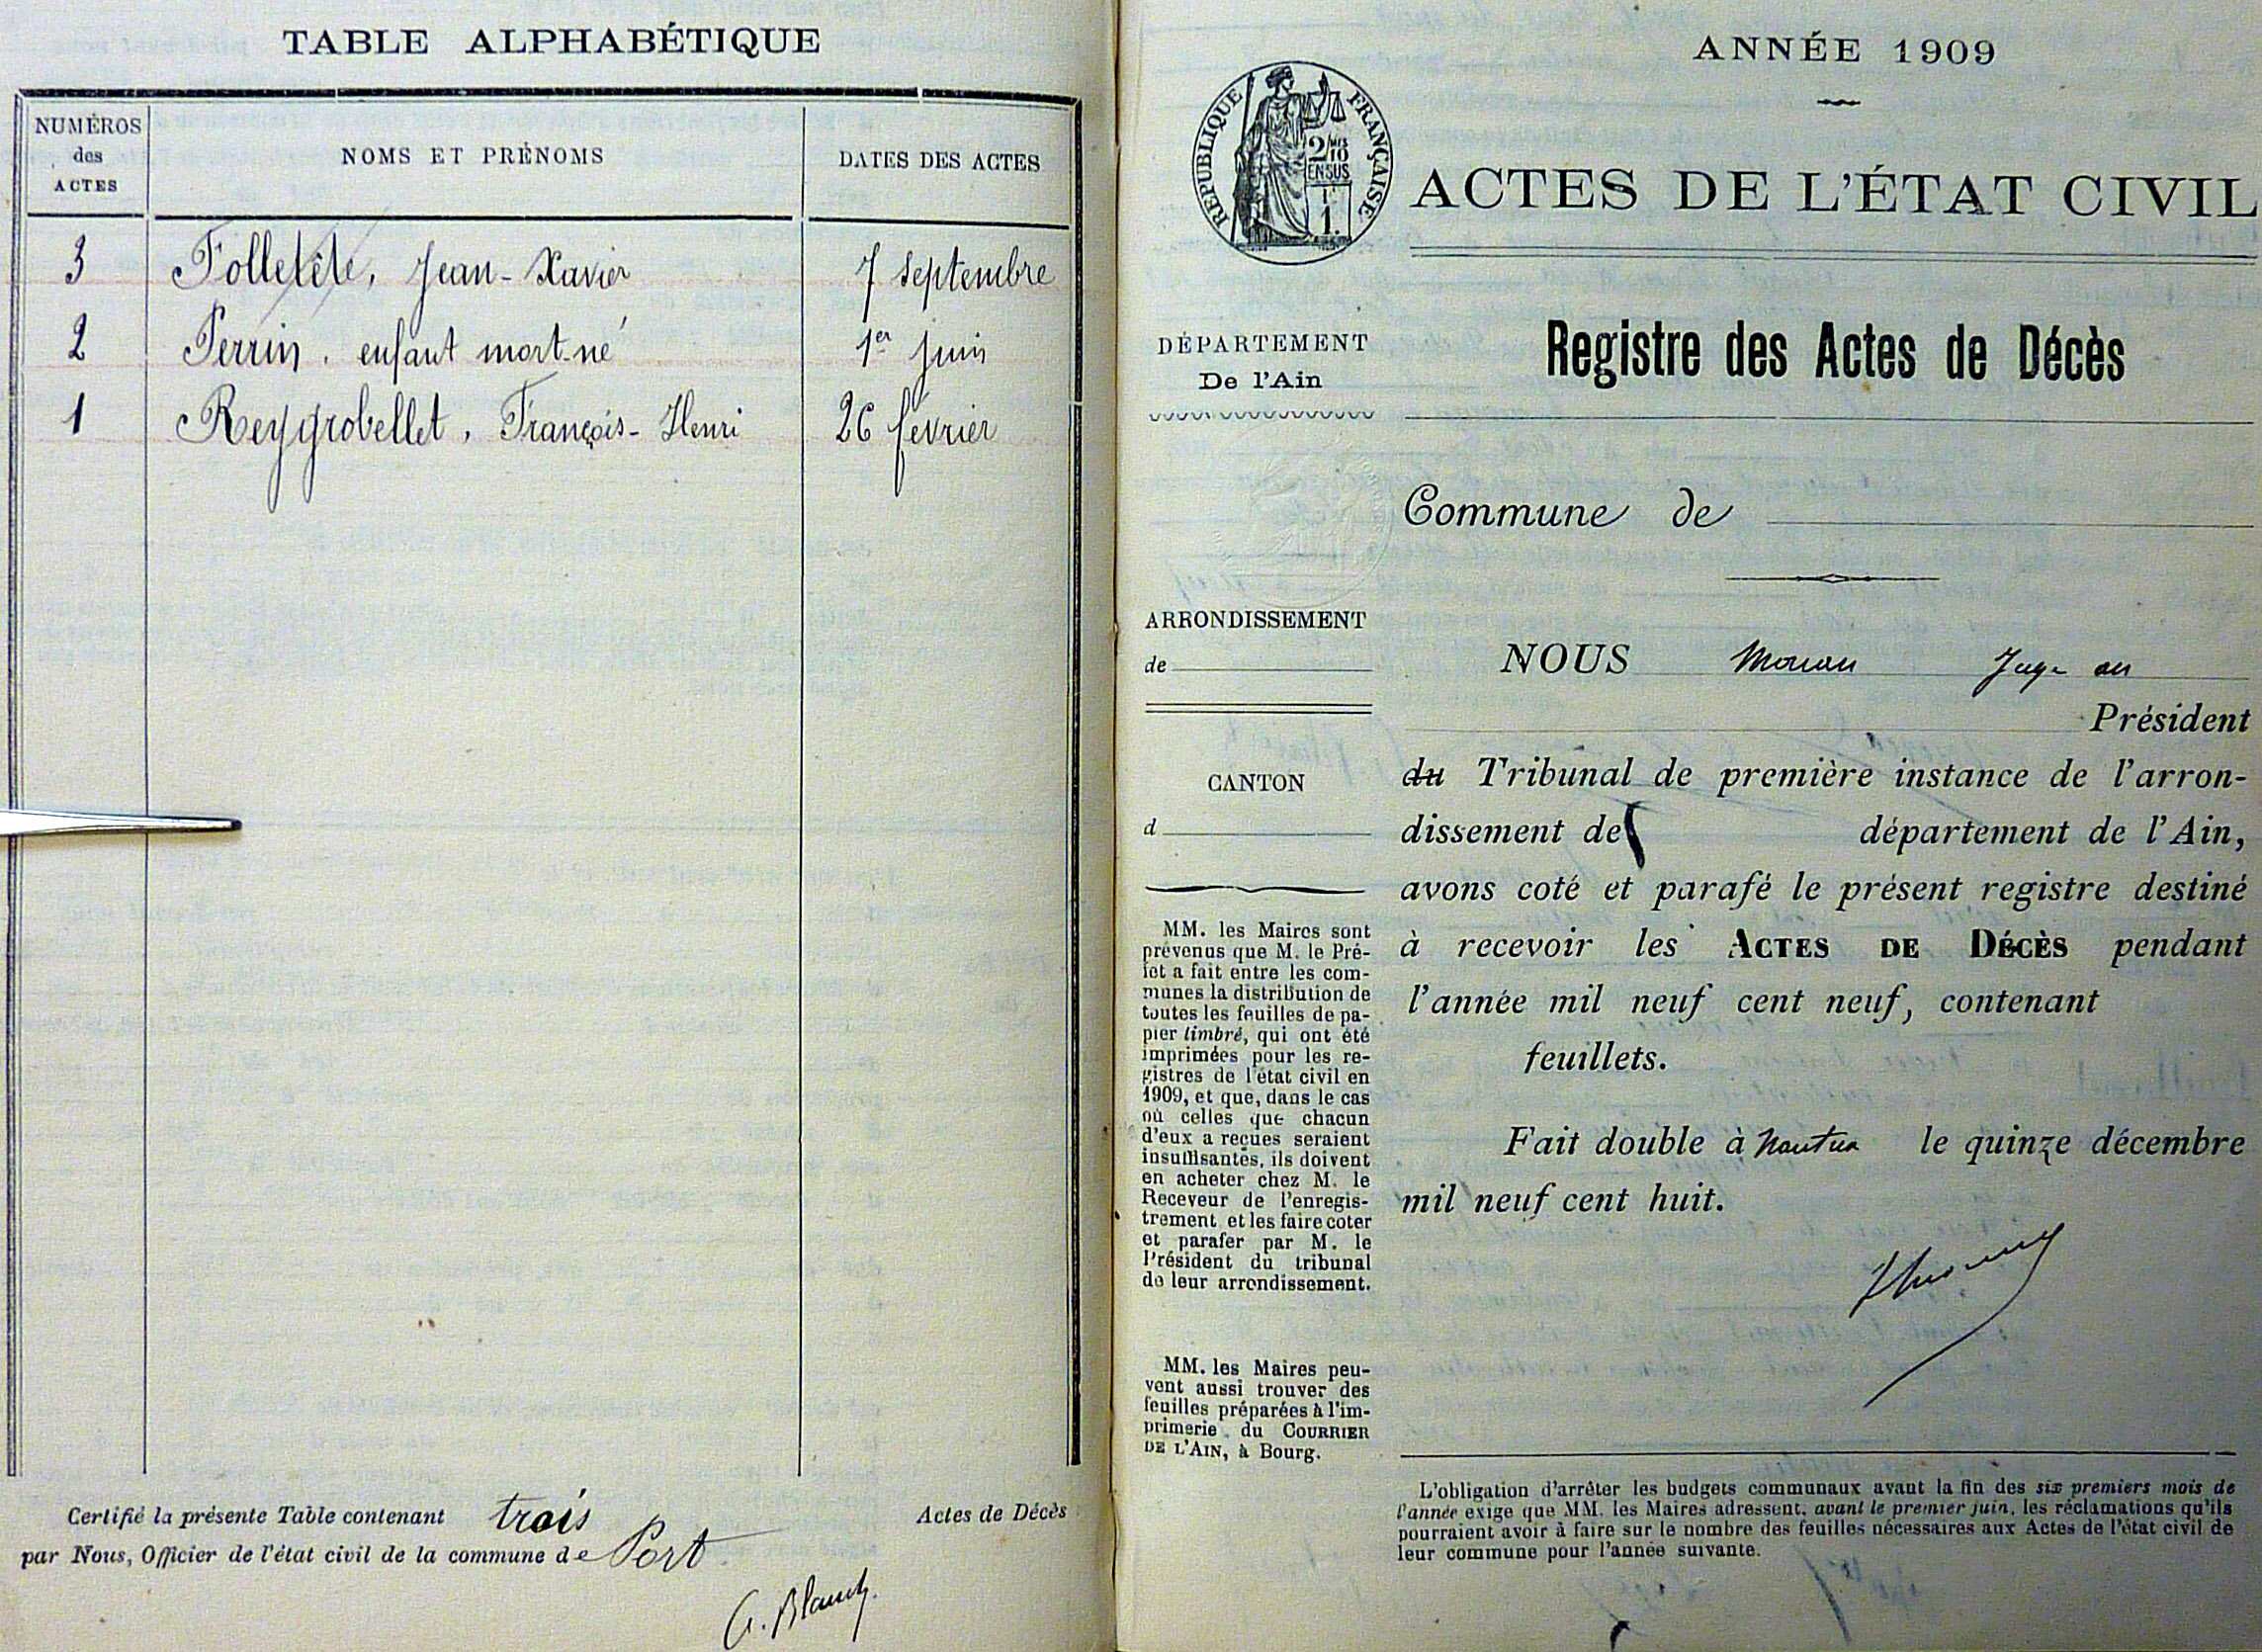 TABLE ALPHABÉTIQUE
NUMÉROS des ACTES
NOMS ET PRÉNOMS
DATES DES ACTES
3 Folletête, Jean-Xavier 7 septembre
2 Perrin, enfant mort-né 1er juin
1 Reygrobellet, François-Henri 26 février
Certifié la présente Table contenant trois Actes de Décès
par Nous, Officier de l'état civil de la commune de Port
G. Blanch
ANNÉE 1909
RÉPUBLIQUE FRANÇAISE
2/10 EN SUS
1
ACTES DE L'ÉTAT CIVIL
DÉPARTEMENT
De l'Ain
Registre des Actes de Décès
Commune de
ARRONDISSEMENT
de
CANTON
d
MM. les Maires sont
prévenus que M. le Pré-
fet a fait entre les com-
munes la distribution de
toutes les feuilles de pa-
pier timbré, qui ont été
imprimées pour les re-
gistres de l'état civil en
1909, et que, dans le cas
où celles que chacun
d'eux a reçues seraient
insuffisantes, ils doivent
en acheter chez M. le
Receveur de l'enregis-
trement et les faire coter
et parafer par M. le
Président du tribunal
de leur arrondissement.
MM. les Maires peu-
vent aussi trouver des
feuilles préparées à l'im-
primerie du COURRIER
DE L'AIN, à Bourg.
NOUS Juge au
Président
du Tribunal de première instance de l'arron-
dissement de département de l'Ain,
avons coté et parafé le présent registre destiné
à recevoir les ACTES DE DÉCÈS pendant
l'année mil neuf cent neuf, contenant
feuillets.
Fait double à Nantua le quinze décembre
mil neuf cent huit.
L'obligation d'arrêter les budgets communaux avant la fin des six premiers mois de
l'année exige que MM. les Maires adressent, avant le premier juin, les réclamations qu'ils
pourraient avoir à faire sur le nombre des feuilles nécessaires aux Actes de l'état civil de
leur commune pour l'année suivante.